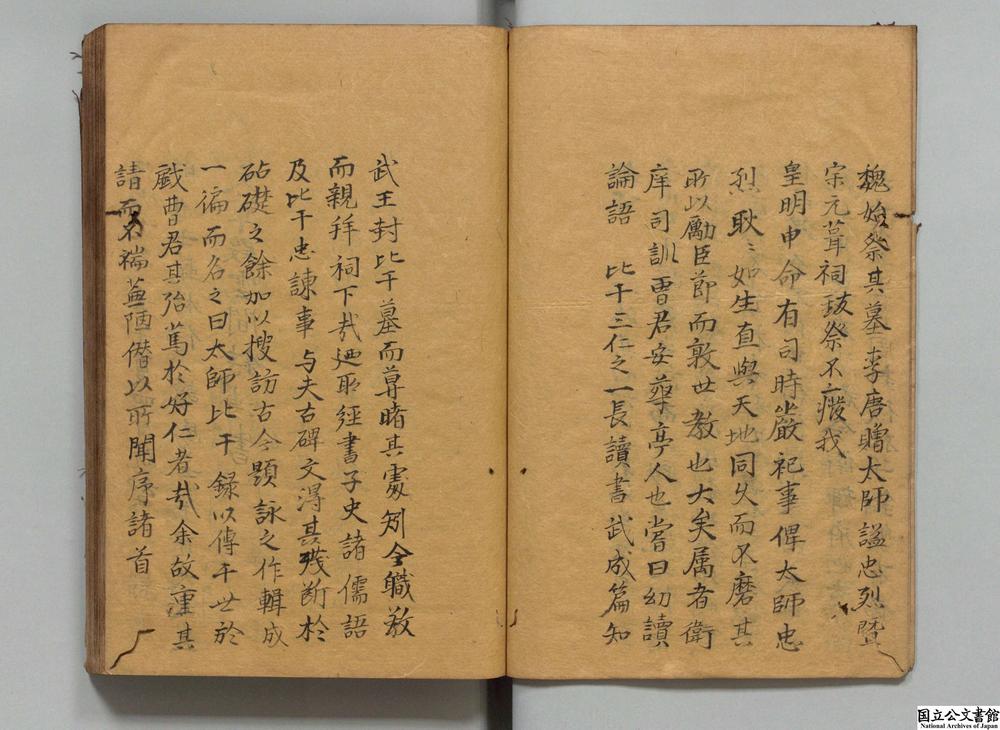 魏始祭其墓李唐贈太師謚忠烈暨
宋元葺祠致祭不廢我
皇明申命有司時嚴祀事俾太師忠
烈耿〻如生直與天地同久而不磨其
所以勵臣節而敦世教也大矣属者衛
庠司訓曹君安華亭人也嘗曰幼讀
論語 比干三仁之一長讀書武成篇知
武王封比干墓而尊睹其處矧今職教
而親拜祠下哉廼取經書子史諸儒語
及比干忠諫事与夫古碑文淂其殘断於
砧礎之餘加以搜訪古今題詠之作輯成
一徧而名之曰太師比干録以傳于世於
戯曹君其殆篤於好仁者哉余故重其
請而不揣蕪陋僭以所聞序諸首
国立公文書館
National Archives of Japan